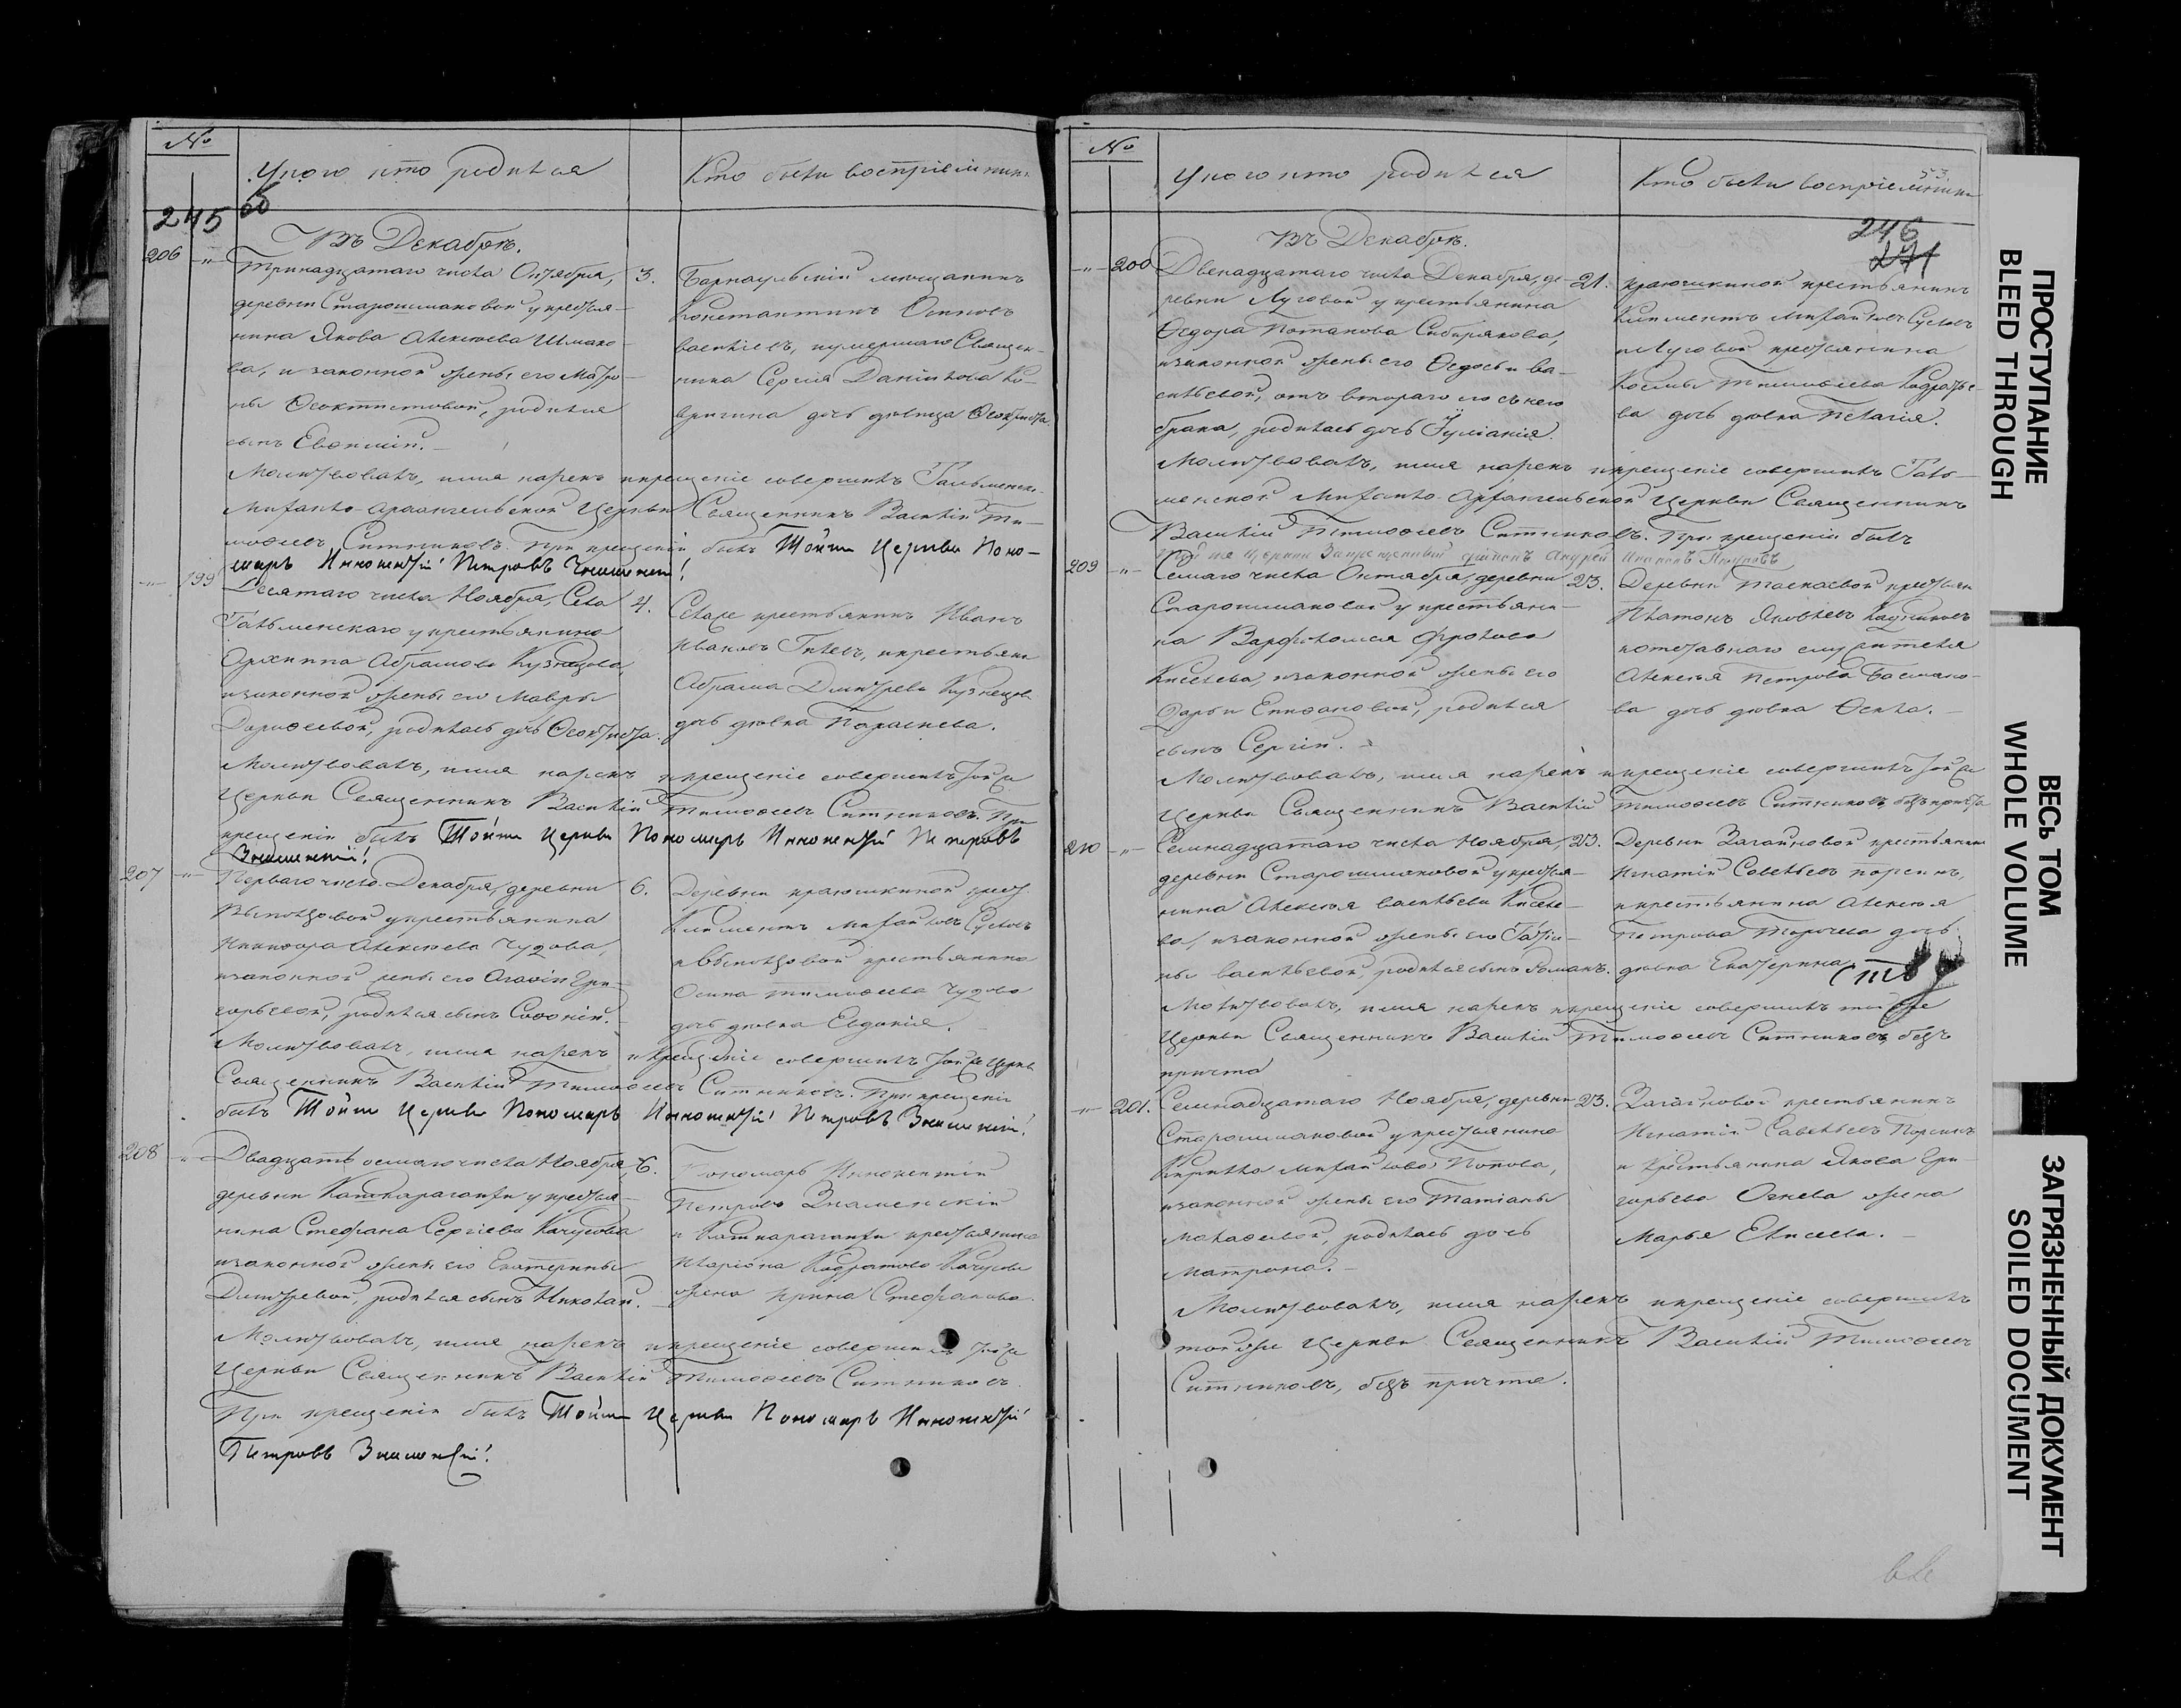 №
У кого кто родился
Кто были воспріемники
245 об
Въ Декабрѣ.
206 -"- Тринадцатаго числа Октября, 3.
деревни Старошмаковой у крестья-
нина Якова Алексѣева Шмако-
ва, и законной жены его Матро-
ны Ѳеоктистовой, родился
сынъ Евѳимій.
Барнаульскій мещанинъ
Константинъ Осиповъ
умершаго Священ-
ника Сергія Данилова Ко-
вригина дочь дѣвица Ѳеоктиста.
Молитвовалъ, имя нарекъ и крещеніе совершилъ Тальменск.
Михаило-Архангельской Церкви Священникъ Василій Ти-
моѳеевъ Ситниковъ. При крещеніи былъ Тойже Церкви Поно-
марь Иннокентій Петровъ Знаменскій
-"- 199 Десятаго числа Ноября, Села 4.
Тальменскаго у крестьянина
Архиппа Абрамова Кузнецова,
и законной жены его Мавры
Дороѳеевой, родилась дочь Ѳеоктиста.
Селаже крестьянинъ Иванъ
Ивановъ Гилевъ, и крестьяни
Абрама Дмитрева Кузнецова
дочь дѣвка Параскева.
Молитвовалъ, имя нарекъ и крещеніе совершилъ тойже
Церкви Священникъ Василій Тимоѳеевъ Ситниковъ. При
крещеніи былъ Тойже Церкви Пономарь Иннокентій Петровъ
Знаменскій
207 -"- Перваго числа Декабря, деревни 6.
Выползовой у крестьянина
Никифора Алексѣева Чудова,
и законной жены его Агаѳіи Гри-
горьевой, родился сынъ Софоній.
Деревни краюшкиной крест.
Климентъ Михайловъ Сусловъ
и Выползовой крестьянина
Осипа Тимоѳеева Чудова
дочь дѣвка Евдокія.
Молитвовалъ, имя нарекъ и крещеніе совершилъ тойже Церкви
Священникъ Василій Тимоѳеевъ Ситниковъ. При крещеніи
былъ Тойже Церкви Пономарь Иннокентій Петровъ Знаменскій
208 -"- Двадцать осьмаго числа Ноября, 6.
деревни у крестья-
нина Стефана Сергіева Качусова
и законной жены его Екатерины
Дмитревой, родился сынъ Николай.
Пономарь Иннокентій
Петровъ Знаменскій
и крестьянина
Иларіона Кадратова Качусова
жена Ирина Стефанова.
Молитвовалъ, имя нарекъ и крещеніе совершилъ тойже
Церкви Священникъ Василій Тимоѳеевъ Ситниковъ.
При крещеніи былъ Тойже Церкви Пономарь Иннокентій
Петровъ Знаменскій
№
У кого кто родился
Кто были воспріемники
53.
246
271
Въ Декабрѣ.
-"- 200 Двенадцатаго числа Декабря, де- 21.
ревни Луговой у крестьянина
Ѳедора Потапова Сибирякова,
и законной жены его Ѳедосьи Ва-
сильевой, отъ втораго его съ нею
брака, родилась дочь Іуліанія.
краюшкиной крестьянинъ
Климентъ Михайловъ Сусловъ
и Луговой крестьянина
Космы Тимоѳеева Кадратье-
ва дочь дѣвка Пелагія.
Молитвовалъ, имя нарекъ и крещеніе совершилъ Таль-
менской Михаило-Архангельской Церкви Священникъ
Василій Тимоѳеевъ Ситниковъ. При крещеніи былъ
той же Церкви Запрещенный діаконъ Андрей
209 -"- Седмаго числа Октября, деревни 23.
Старошмаковой у крестьяни-
на Варфоломея Фролова
Киселева, и законной жены его
Дарьи Епифановой, родился
сынъ Сергій.
Деревни Таскаевой крестьян
Платонъ Яковлевъ
и отставнаго служителя
Алексѣя Петрова Басмано-
ва дочь дѣвка Ѳекла.
Молитвовалъ, имя нарекъ и крещеніе совершилъ тойже
Церкви Священникъ Василій Тимоѳеевъ Ситниковъ, безъ причта
210 -"- Семнадцатаго числа Ноября, 23.
деревни Старошмаковой у крестья-
нина Алексѣя Васильева Киселе-
ва, и законной жены его Татья-
ны Васильевой, родился сынъ Романъ.
Деревни Загайновой крестьянинъ
Игнатій Савельевъ Порсинъ,
и крестьянина Алексѣя
Петрова Торочева дочь
дѣвка Екатерина.
Молитвовалъ, имя нарекъ и крещеніе совершилъ тойже
Церкви Священникъ Василій Тимоѳеевъ Ситниковъ, безъ
причта
-"- 201. Семнадцатаго Ноября, деревни 23.
Старошмаковой у крестьянина
Кирилла Михайлова Попова,
и законной жены его Татіаны
Малаѳеевой, родилась дочь
Матрона.
Загайновой крестьянинъ
Игнатій Савельевъ Порсинъ
и крестьянина Якова Гри-
горьева Огнева жена
Марья Елисеева.
Молитвовалъ, имя нарекъ и крещеніе совершилъ
тойже Церкви Священникъ Василій Тимоѳеевъ
Ситниковъ, безъ причта.
ПРОСТУПАНИЕ
BLEED THROUGH
ВЕСЬ ТОМ
WHOLE VOLUME
ЗАГРЯЗНЕННЫЙ ДОКУМЕНТ
SOILED DOCUMENT